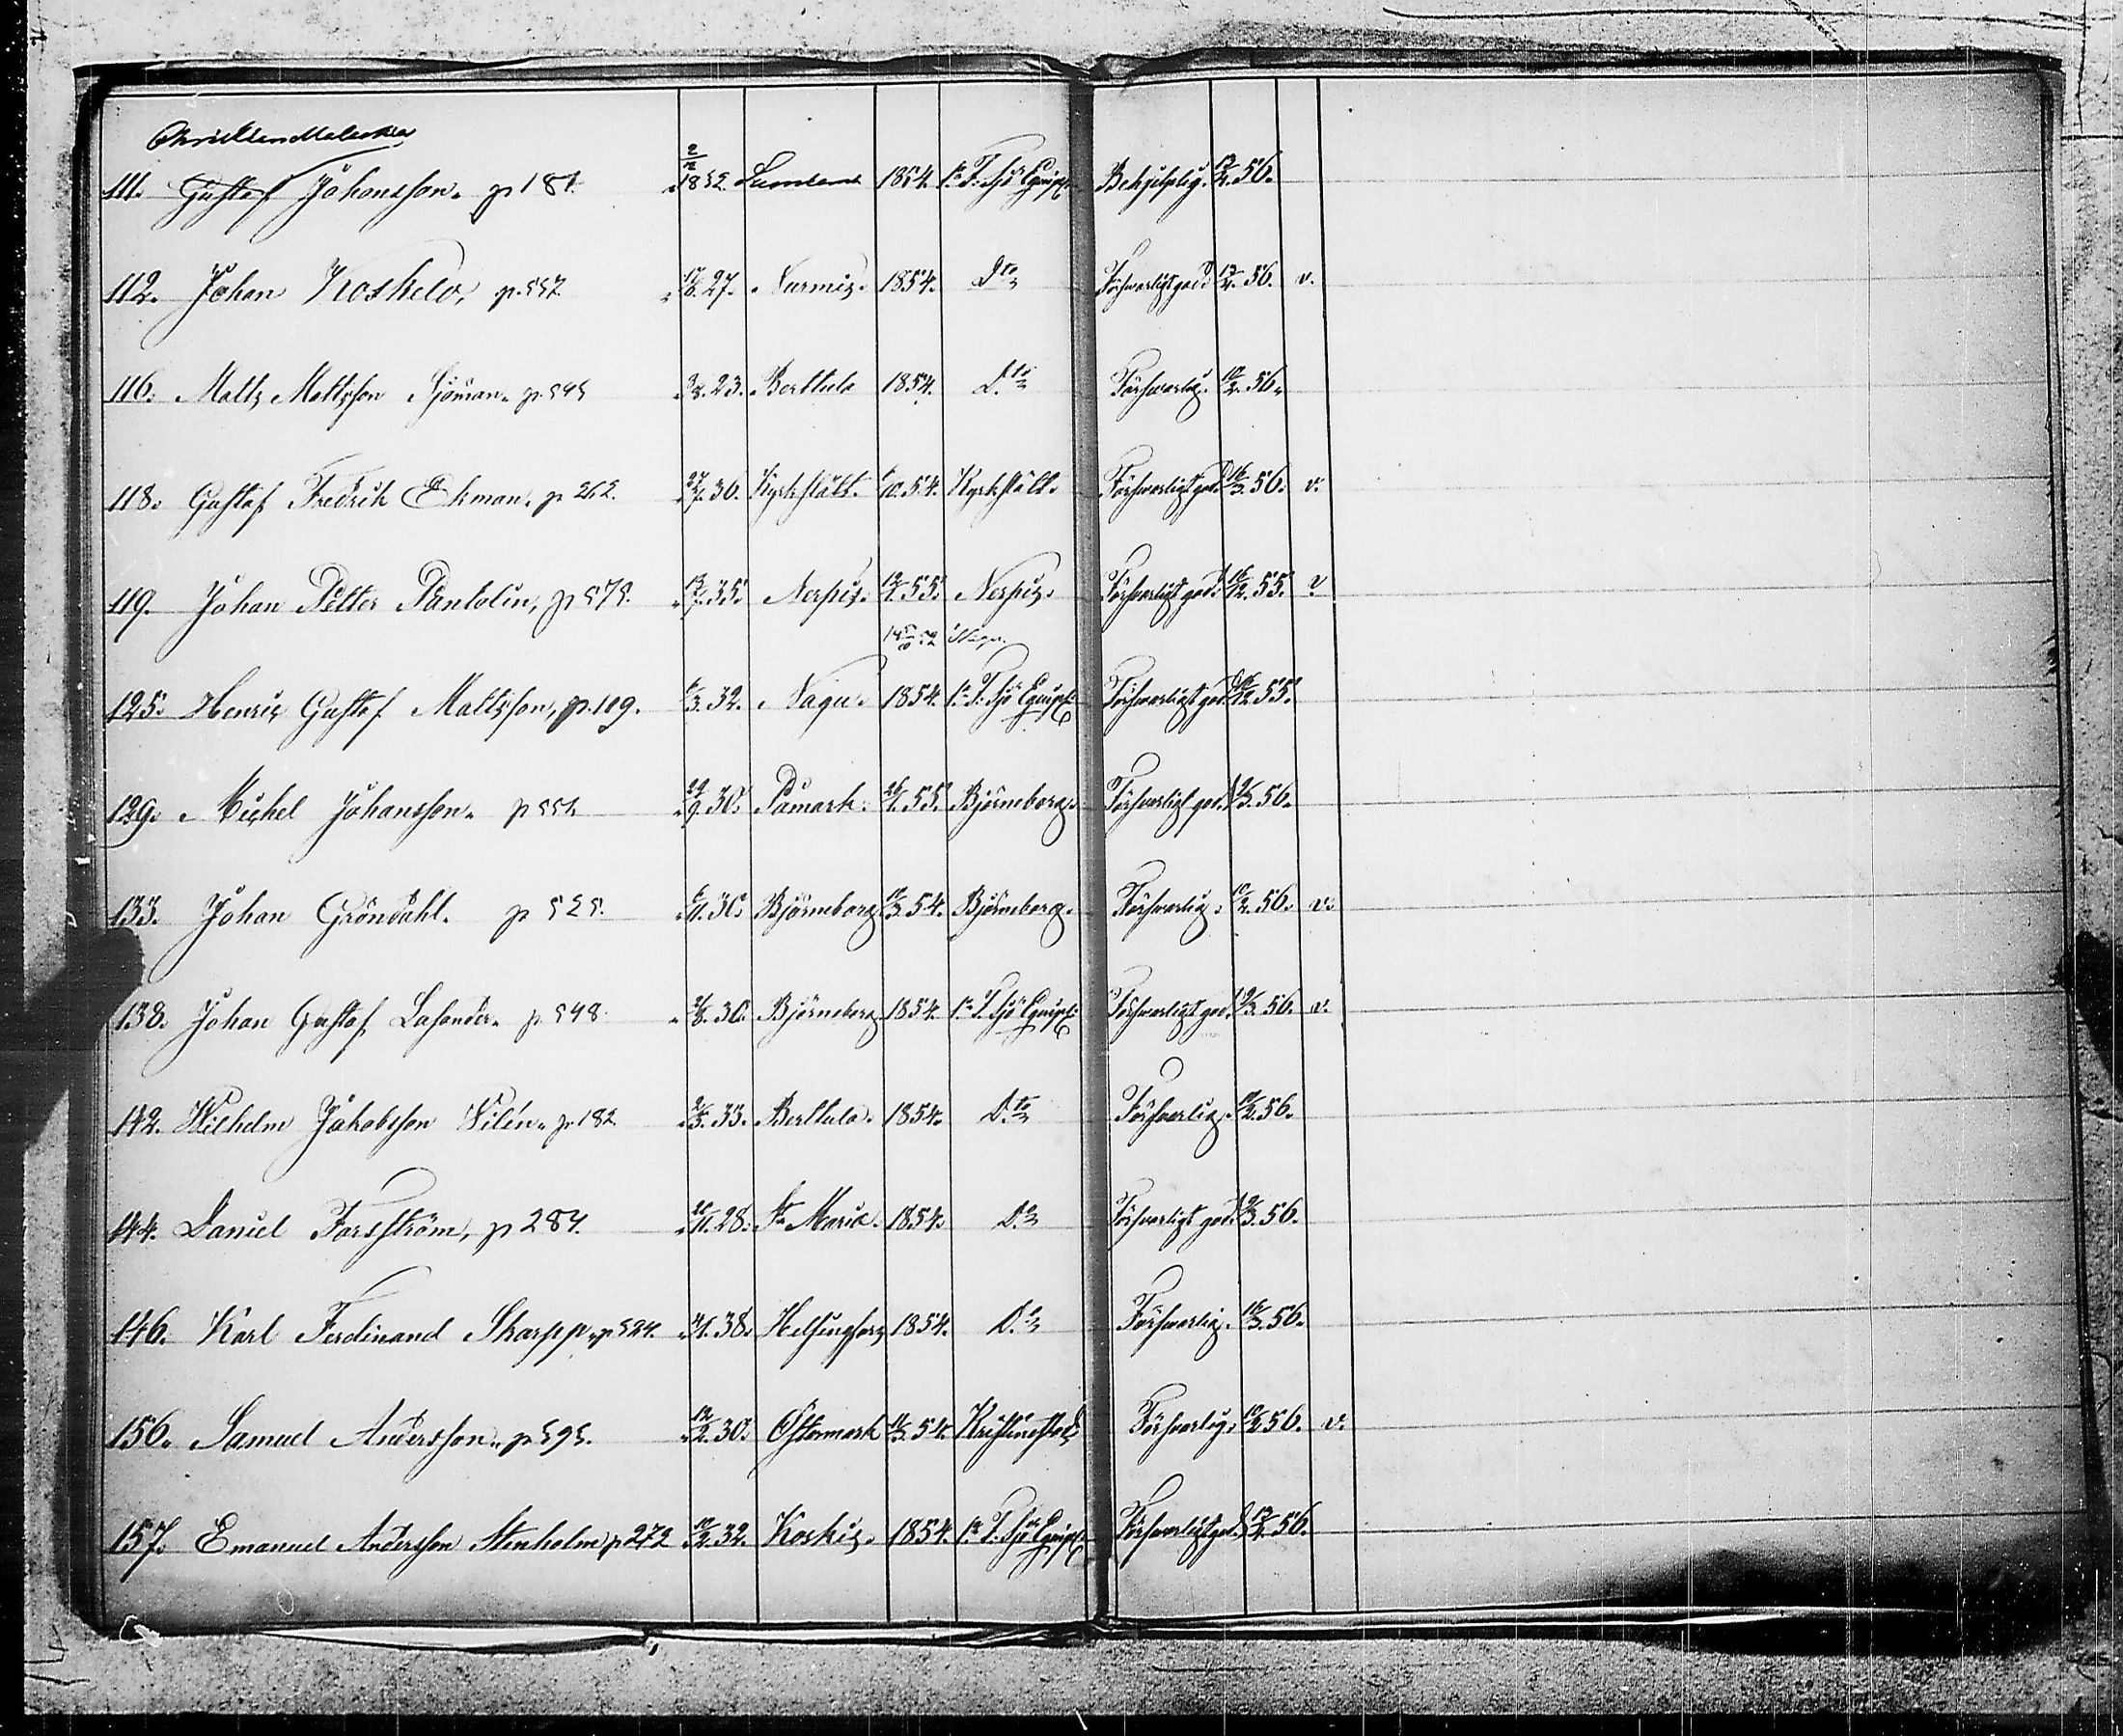 111. Gustaf Johansson. p 181. 2/12 1832. Sundland 1854. 1a F. Sjö Equip. Behjelplig. 13/2. 56.
112. Johan Koskelo, p. 557. 17/6. 27. Nurmis. 1854. Dto Försvarligt god. 13/2. 56. v.
116. Matts Mattsson Sjöman. p. 595 3/8. 23. Berttula 1854. Dto Försvarlig. 10/2. 56.
118. Gustaf Fredrik Ekman. p 262. 27/7. 30. Kyrkslätt. 6/10. 54. Kyrkslätt. Försvarligt god. 16/3. 56. v.
119. Johan Petter Pantolin, p 575. 13/7. 35. Nerpis. 12/1. 55. Nerpis. Försvarligt god. 16/12. 55. v
52 Nagu.
125. Henric Gustaf Mattsson, p. 109. 6/3. 32. Nagu. 1854. 1a F. Sjö Equip. Försvarligt god. 12. 55.
129. Michel Johansson. p 551. 29/9. 30. Påmark. 26/1. 55. Björneborg. Försvarligt god. 9/3. 56.
133. Johan Gröndahl. p 525. 6/11. 30. Björneborg 18/3. 54. Björneborg. Försvarlig. 10/2. 56. v.
138. Johan Gustaf Lasander. p. 548. 2/8. 30. Björneborg 1854. 1a F. Sjö Equip. Försvarligt god. 9/3. 56. v.
142. Wilhelm Jakobsson Wilén. p. 182. 2/5. 33. Berttula. 1854. Dto Försvarlig. 10/2. 56.
144. Daniel Forsström, p 284. 20/11. 28. St Marie. 1854. Do Försvarligt god. 9/3. 56.
146. Karl Ferdinand Skarpp. p 524. 4/1. 38. Helsingfors 1854. Do Försvarlig. 16/3. 56.
156. Samuel Andersson. p 595. 12/2. 30. Östermark 11/3. 54. Kristinestad Försvarlig. 10/2 56. v.
157. Emanuel Andersson Stenholm p 272 10/2. 32. Koskis. 1854. 1a F. Sjö Equip. Försvarligt god. 13/2. 56.